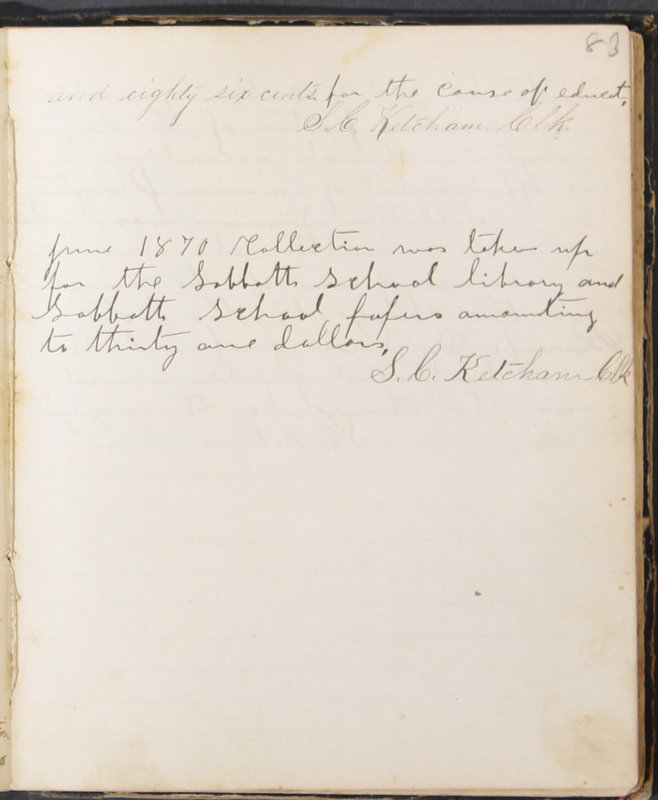 83
and eighty six cents for the cause of educat.
S. C. Ketcham Clk.
June 1870 Collection was taken up
for the Sabbath School library and
Sabbath School papers amounting
to thirty one dollars,
S. C. Ketcham Clk